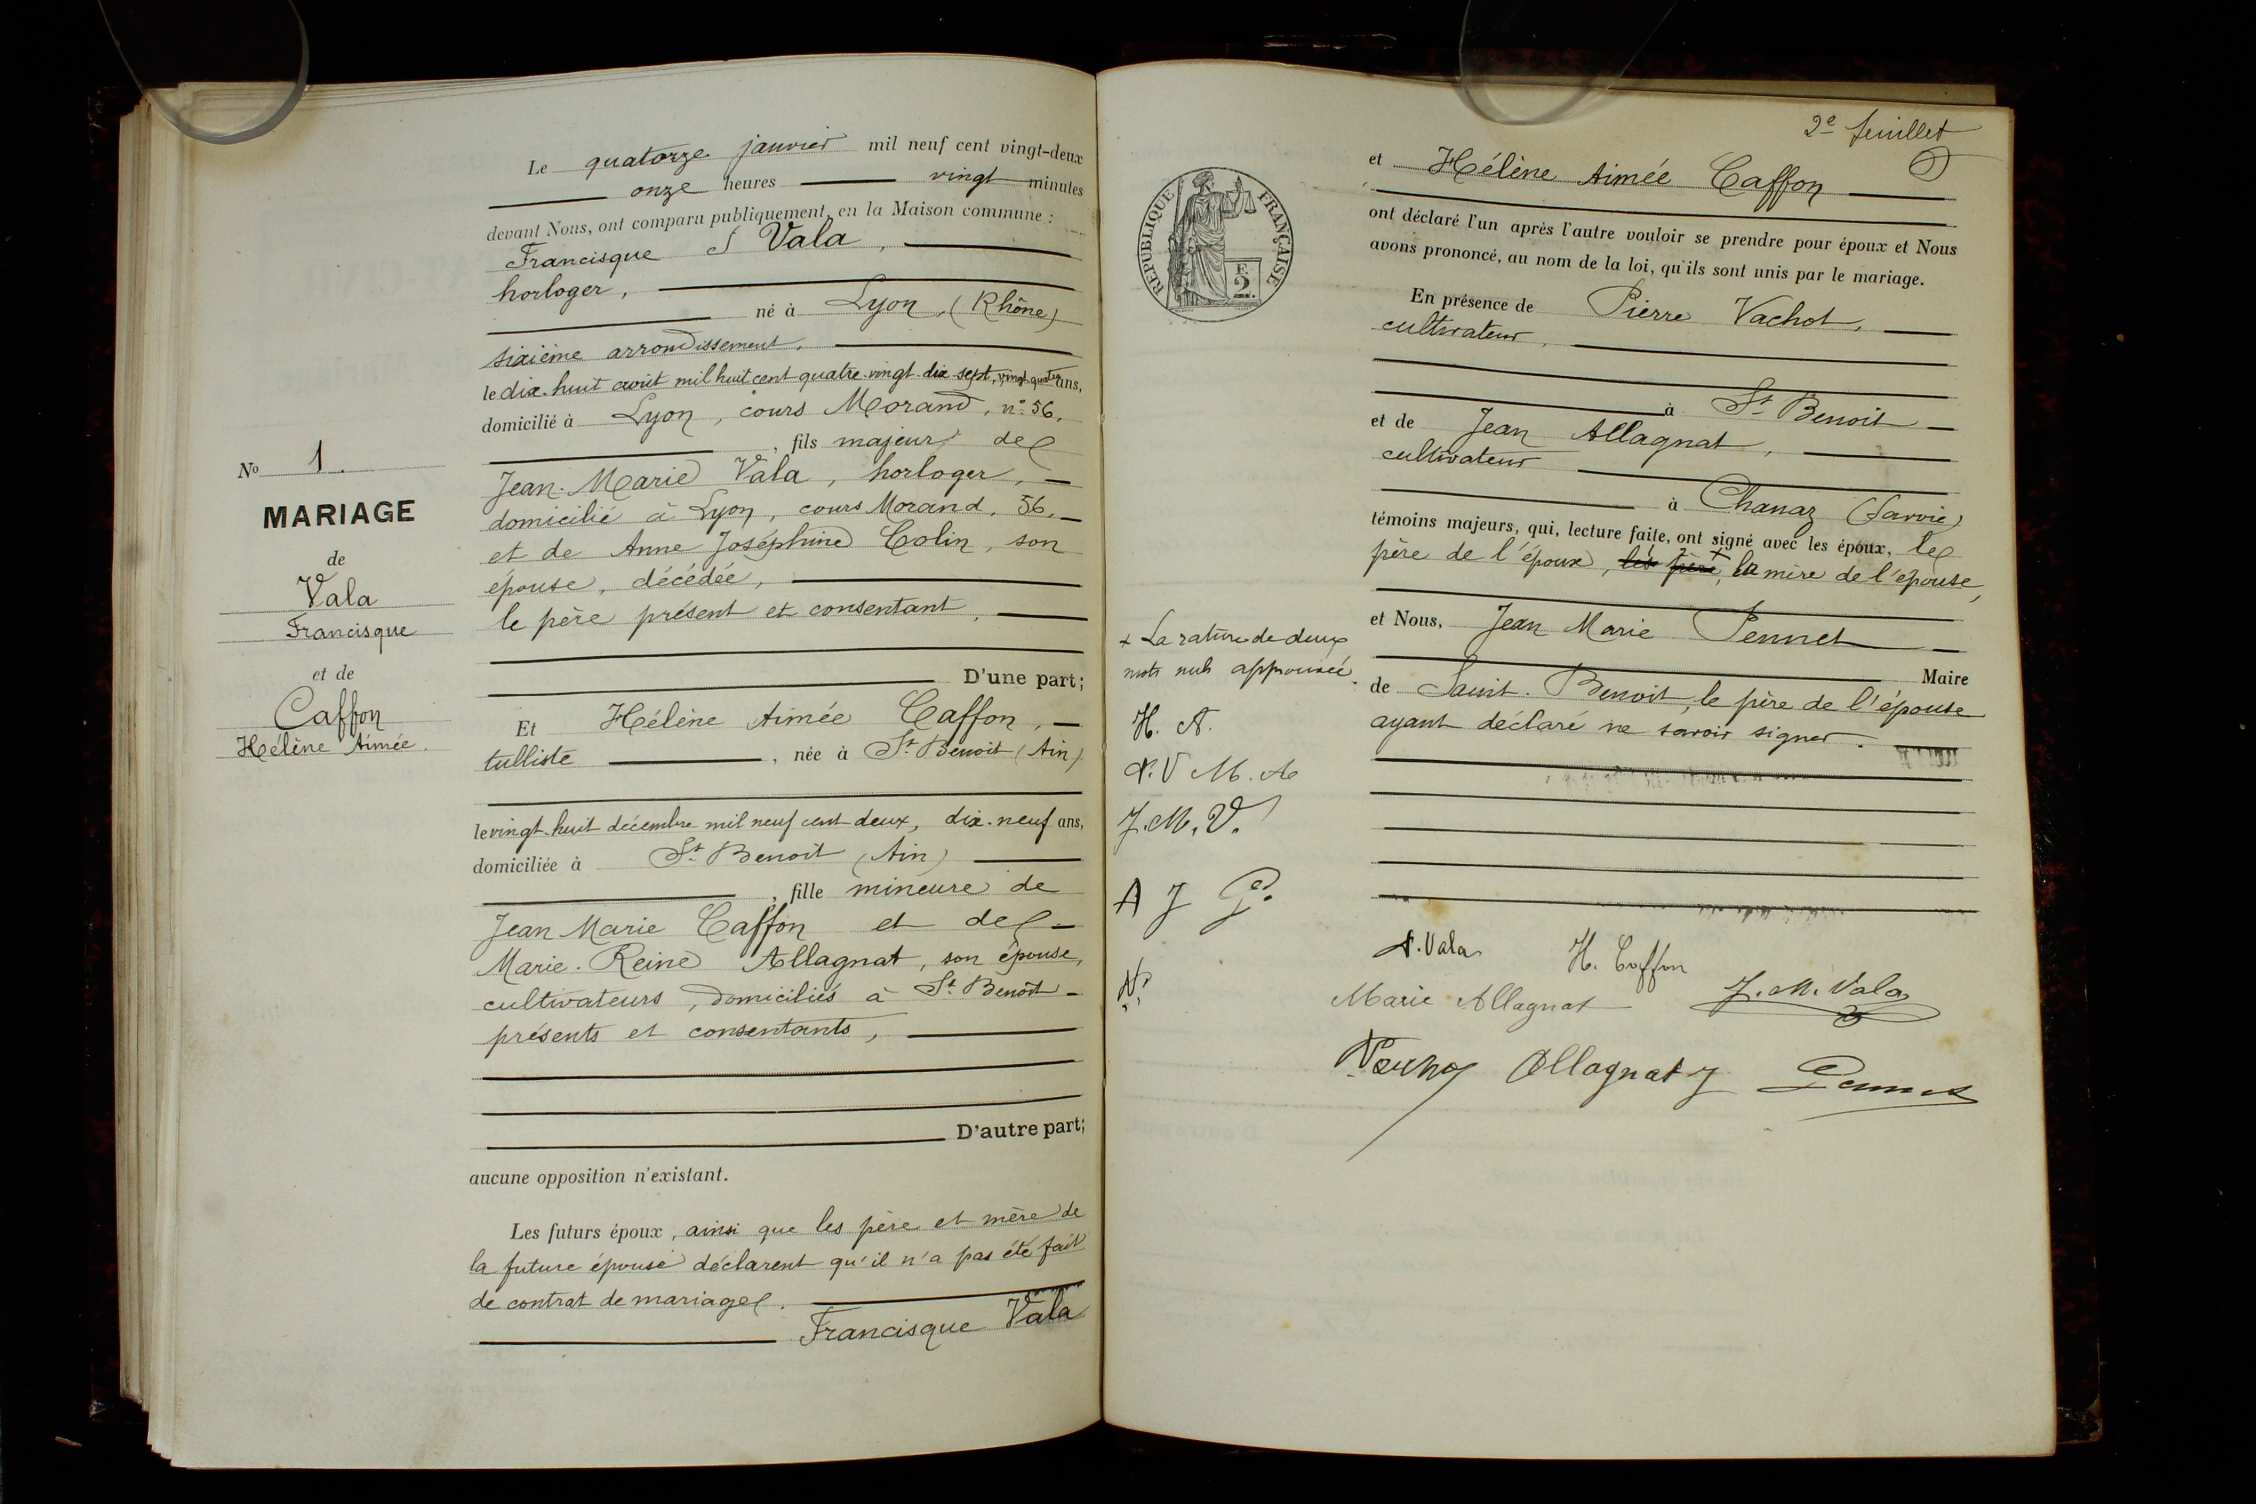 No 1.
MARIAGE
de
Vala
Francisque
et de
Caffon
Hélène Aimée.
Le quatorze janvier mil neuf cent vingt-deux
onze heures vingt minutes
devant Nous, ont comparu publiquement en la Maison commune :
Francisque Vala,
horloger,
né à Lyon, (Rhône)
sixième arrondissement,
le dix-huit août mil huit cent quatre-vingt-dix-sept, vingt-quatre ans,
domicilié à Lyon, cours Morand, n° 56,
, fils majeur de
Jean-Marie Vala, horloger,
domicilié à Lyon, cours Morand, 56,
et de Anne Joséphine Colin, son
épouse, décédée,
le père présent et consentant,
D'une part;
Et Hélène Aimée Caffon,
tulliste, née à St Benoit (Ain)
le vingt-huit décembre mil neuf cent deux, dix-neuf ans,
domiciliée à St Benoit (Ain)
, fille mineure de
Jean Marie Caffon et de
Marie-Reine Allagnat, son épouse,
cultivateurs, domiciliés à St Benoit
présents et consentants,
D'autre part;
aucune opposition n'existant.
Les futurs époux, ainsi que les père et mère de
la future épouse déclarent qu'il n'a pas été fait
de contrat de mariage.
Francisque Vala
2e feuillet
RÉPUBLIQUE FRANÇAISE
F
2.
et Hélène Aimée Caffon
ont déclaré l'un après l'autre vouloir se prendre pour époux et Nous
avons prononcé, au nom de la loi, qu'ils sont unis par le mariage.
En présence de Pierre Vachot,
cultivateur,
à St Benoit
et de Jean Allagnat,
cultivateur
à Chanaz (Savoie)
témoins majeurs, qui, lecture faite, ont signé avec les époux, le
père de l'époux, les père, + la mère de l'épouse,
et Nous, Jean Marie Pennet
Maire
de Saint-Benoit, le père de l'épouse
ayant déclaré ne savoir signer.
+ La rature de deux
mots nuls approuvée.
H. A.
V M. A
J. M. V.
A J
Vala
H. Caffon
Marie Allagnat
J. M. Vala
Allagnat J
Pennet